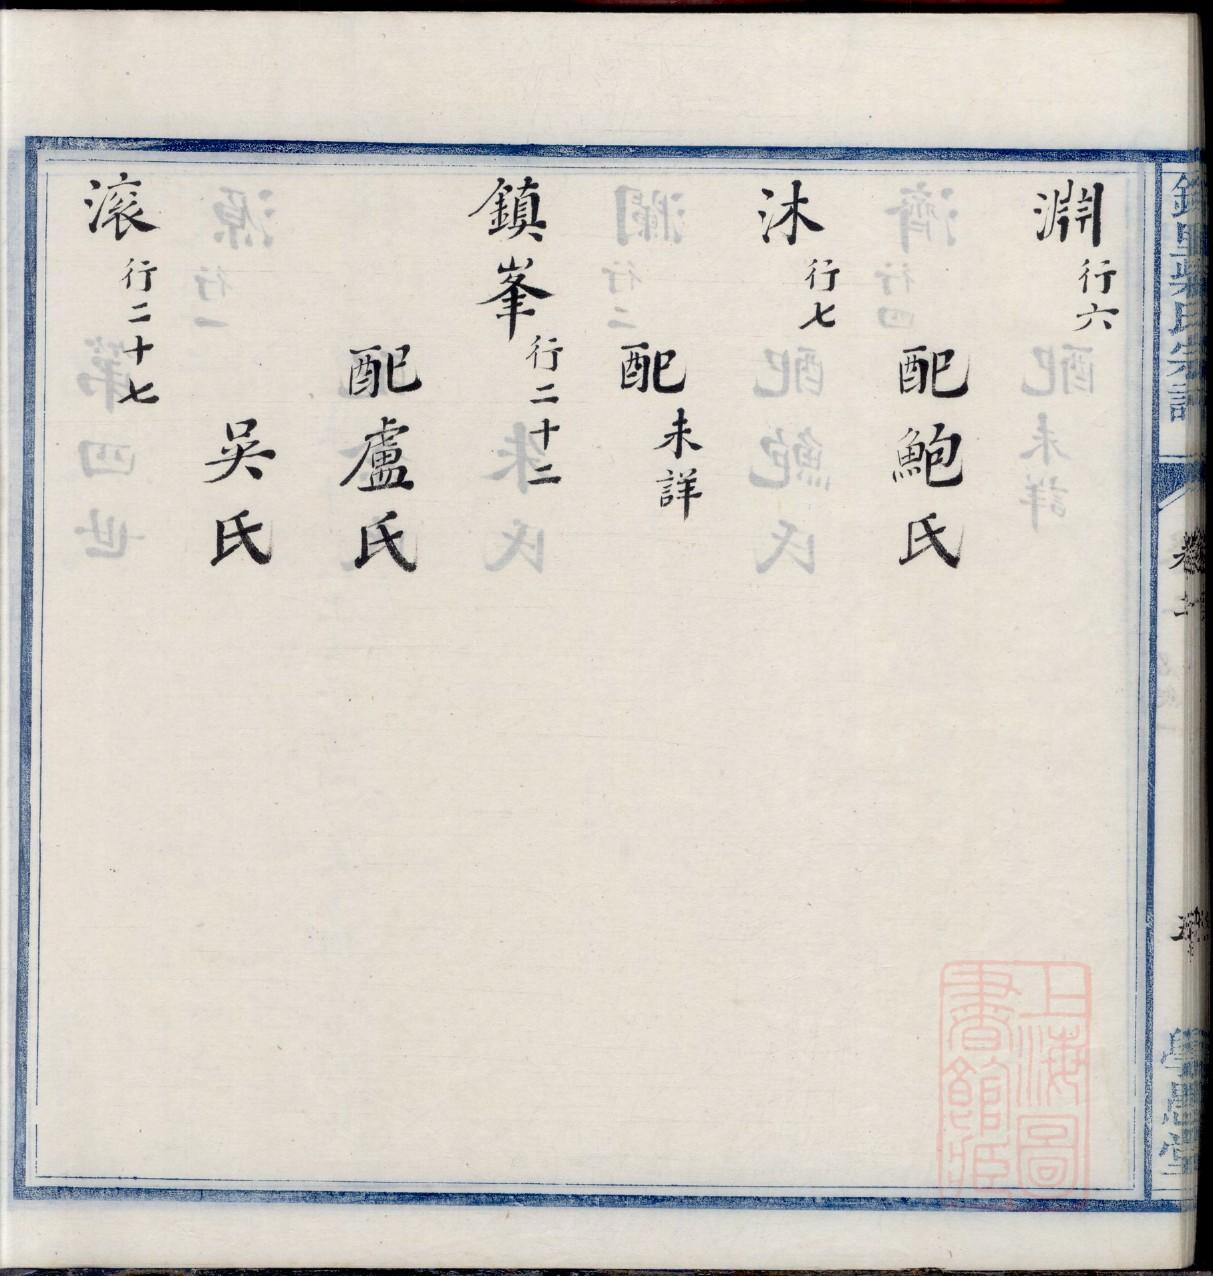 淵行六
配鮑氏
沐行七
配未詳
鎮峯行二十二
配盧氏
吳氏
滚行二十七
上海圖
書館藏